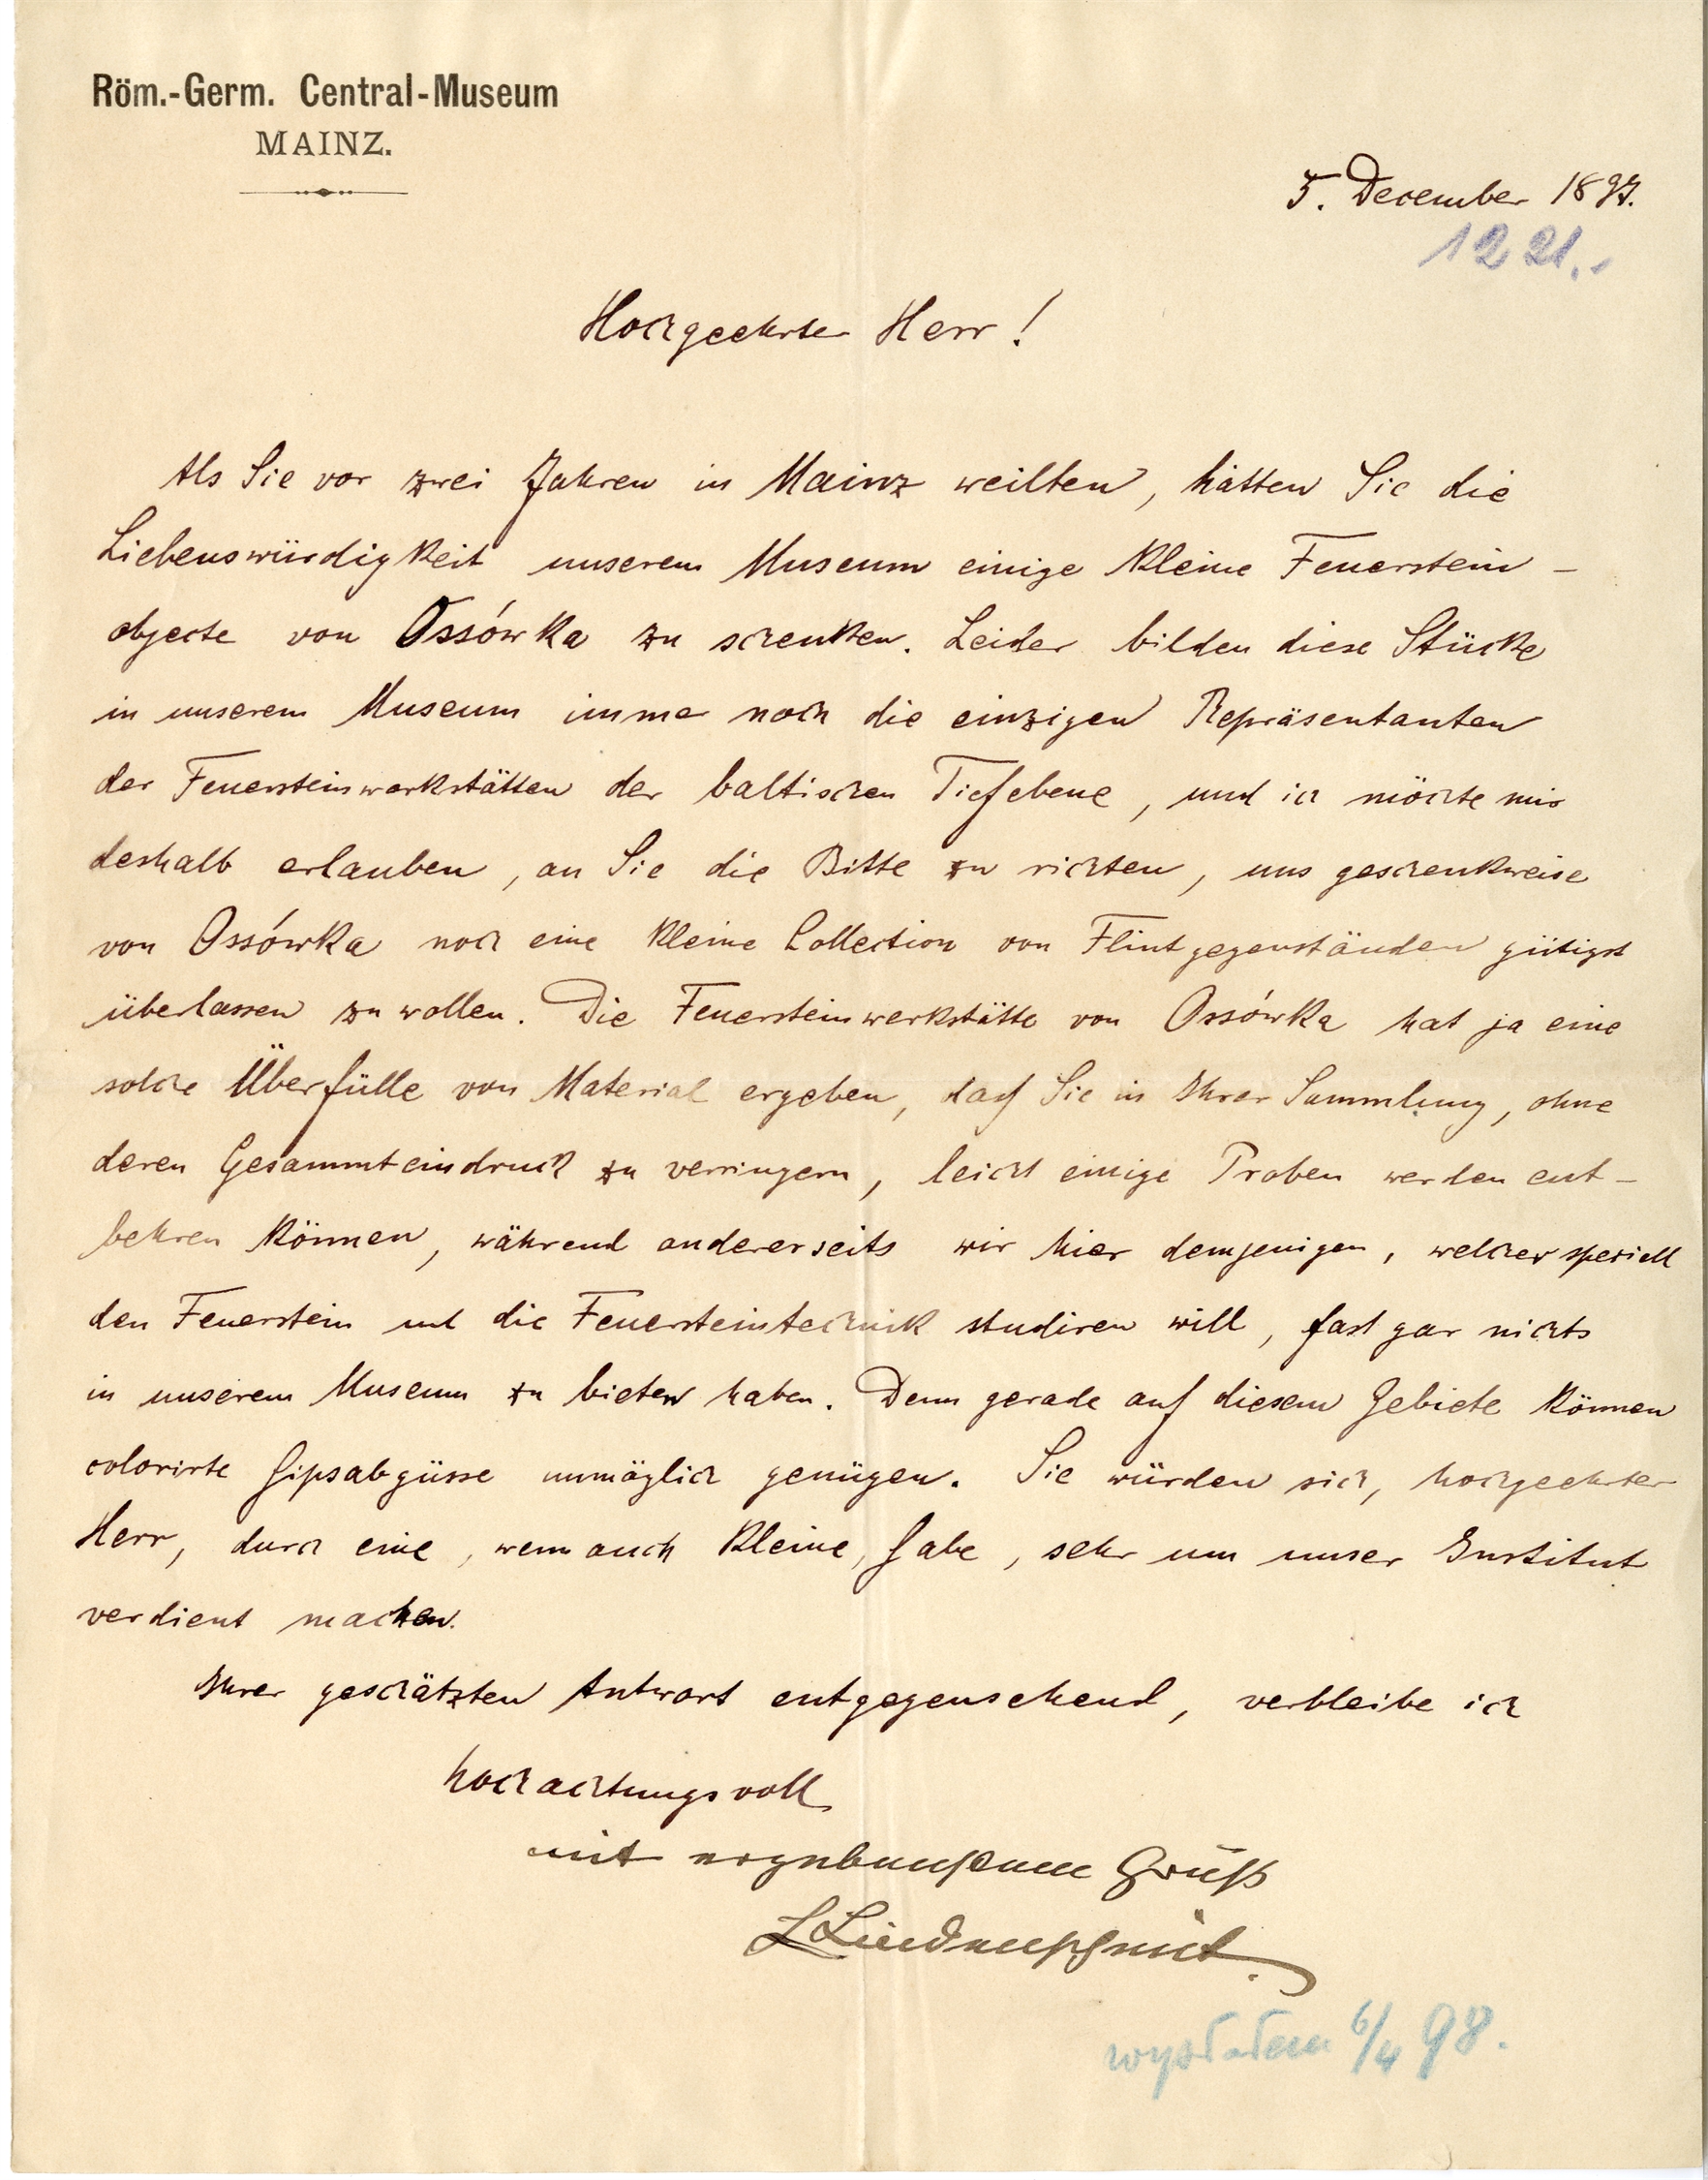 Röm.-Germ. Central-Museum
MAINZ.
5. December 1897.
1221.
Hochgeehrter Herr!
Als Sie vor zwei Jahren in Mainz weilten, hatten Sie die
Liebenswürdigkeit unserem Museum einige kleine Feuerstein-
objecte von Ossówka zu schenken. Leider bilden diese Stücke
in unserem Museum immer noch die einzigen Repräsentanten
der Feuersteinwerkstätten der baltischen Tiefebene, und ich möchte mir
deshalb erlauben, an Sie die Bitte zu richten, uns geschenkweise
von Ossówka noch eine kleine Collection von Flintgegenständen gütigst
überlassen zu wollen. Die Feuersteinwerkstätte von Ossówka hat ja eine
solche Überfülle von Material ergeben, daß Sie in Ihrer Sammlung, ohne
deren Gesammteindruck zu verringern, leicht einige Proben werden ent-
behren können, während andererseits wir hier demjenigen, welcher speciell
den Feuerstein und die Feuersteintechnik studiren will, fast gar nichts
in unserem Museum zu bieten haben. Denn gerade auf diesem Gebiete können
colorirte Gipsabgüsse unmöglich genügen. Sie würden sich, hochgeehrter
Herr, durch eine, wenn auch kleine, Gabe, sehr um unser Institut
verdient machen.
Ihrer geschätzten Antwort entgegensehend, verbleibe ich
hochachtungsvoll
mit ergebenstem Gruß
L Lindenschmit.
wysłałem 6/4 98.